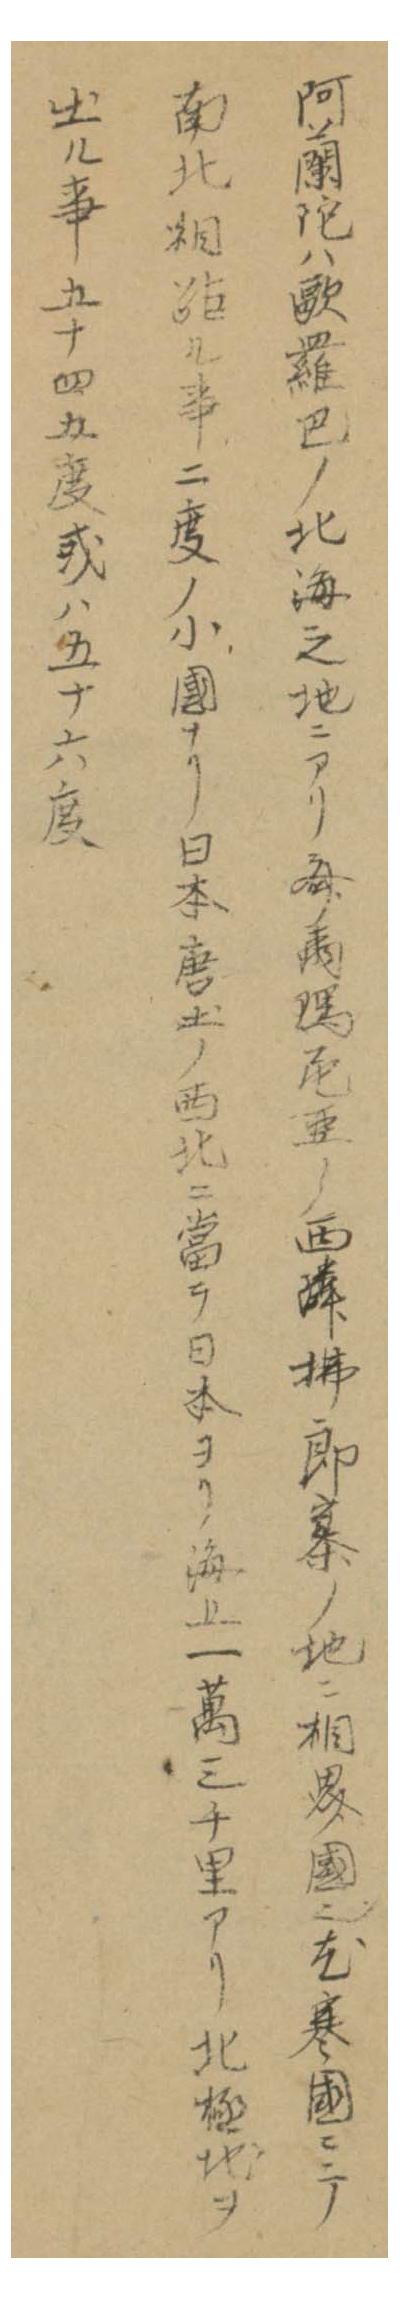 阿蘭陀ハ歐羅巴ノ北海之地ニアリ爾瑪尼亜ノ西隣拂郎察ノ地ニ相界國之尤寒國ニテ
南北相距ル事二度ノ小國ナリ日本唐土ノ西北ニ當テ日本ヨリ海上一萬三千里アリ北極地ヲ
出ル事五十四五度或ハ五十六度